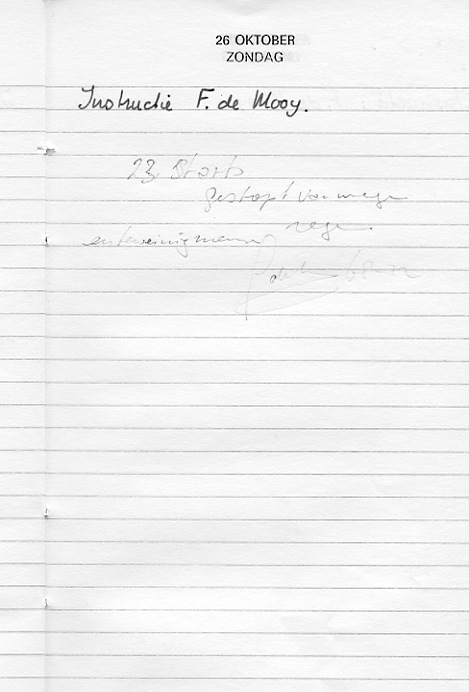 26 OKTOBER
ZONDAG
Instructie F. de Mooy.
23 Starts
gestopt vanwege
regen
en te weinig mensen